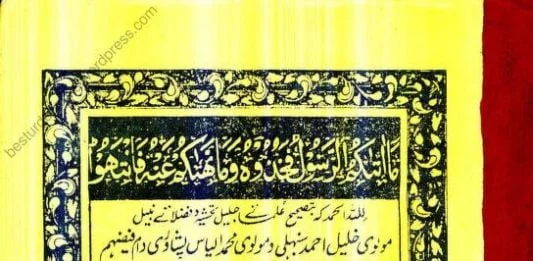 besturd rdpress.com
ما اتىكم الرسول فخذوه وما نهىكم عنه فانتهوا
للہ الحمد کہ بتصحیح علمائے جلیل تحشیہ و فضلائے نبیل
مولوی خلیل احمد سنبھلی و مولوی محمد الیاس پشاوری دام فیضہم